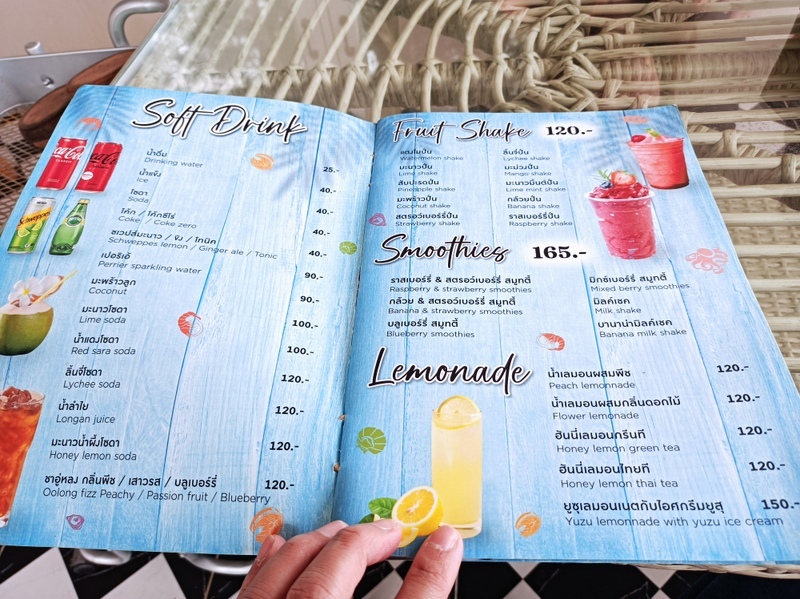 Soft Drink
น้ำดื่ม
Drinking water
25.-
น้ำแข็ง
Ice
40.-
โซดา
Soda
40.-
โค้ก / โค้กซีโร่
Coke / Coke zero
40.-
ชเวปส์มะนาว / ขิง / โทนิค
Schweppes lemon / Ginger ale / Tonic
40.-
เปอริเอ้
Perrier sparkling water
90.-
มะพร้าวลูก
Coconut
90.-
มะนาวโซดา
Lime soda
100.-
น้ำแดงโซดา
Red sara soda
100.-
ลิ้นจี่โซดา
Lychee soda
120.-
น้ำลำไย
Longan juice
120.-
มะนาวน้ำผึ้งโซดา
Honey lemon soda
120.-
ชาอู่หลง กลิ่นพีช / เสาวรส / บลูเบอร์รี่
Oolong fizz Peachy / Passion fruit / Blueberry
120.-
Coca-Cola
Schweppes
Fruit Shake 120.-
แตงโมปั่น
Watermelon shake
มะนาวปั่น
Lime shake
สับปะรดปั่น
Pineapple shake
มะพร้าวปั่น
Coconut shake
สตรอว์เบอร์รี่ปั่น
Strawberry shake
ลิ้นจี่ปั่น
Lychee shake
มะม่วงปั่น
Mango shake
มะนาวมิ้นต์ปั่น
Lime mint shake
กล้วยปั่น
Banana shake
ราสเบอร์รี่ปั่น
Raspberry shake
Smoothies 165.-
ราสเบอร์รี่ & สตรอว์เบอร์รี่ สมูทตี้
Raspberry & strawberry smoothies
กล้วย & สตรอว์เบอร์รี่ สมูทตี้
Banana & strawberry smoothies
บลูเบอร์รี่ สมูทตี้
Blueberry smoothies
มิกซ์เบอร์รี่ สมูทตี้
Mixed berry smoothies
มิลค์เชค
Milk shake
บานาน่ามิลค์เชค
Banana milk shake
Lemonade
น้ำเลมอนผสมพีช
Peach lemonnade
120.-
น้ำเลมอนผสมกลิ่นดอกไม้
Flower lemonade
120.-
ฮันนี่เลมอนกรีนที
Honey lemon green tea
120.-
ฮันนี่เลมอนไทยที
Honey lemon thai tea
120.-
ยูซุเลมอนเนดกับไอศกรีมยูสุ
Yuzu lemonade with yuzu ice cream
150.-